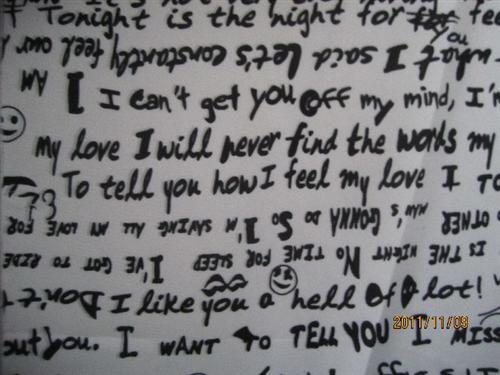 Tonight is the night for
what I said let's constantly feel our
You
I AM
I can't get you off my mind, I'm
my love I will never find the words my
To tell you how I feel my love I
OTHER MAN'S GONNA DO SO I'M SAVING ALL MY LOVE FOR
IS THE NIGHT NO TIME FOR SLEEP I'VE GOT TO RIDE
I like you a hell of a lot! Don't
out you. I WANT TO TELL YOU I MISS
2011/11/09